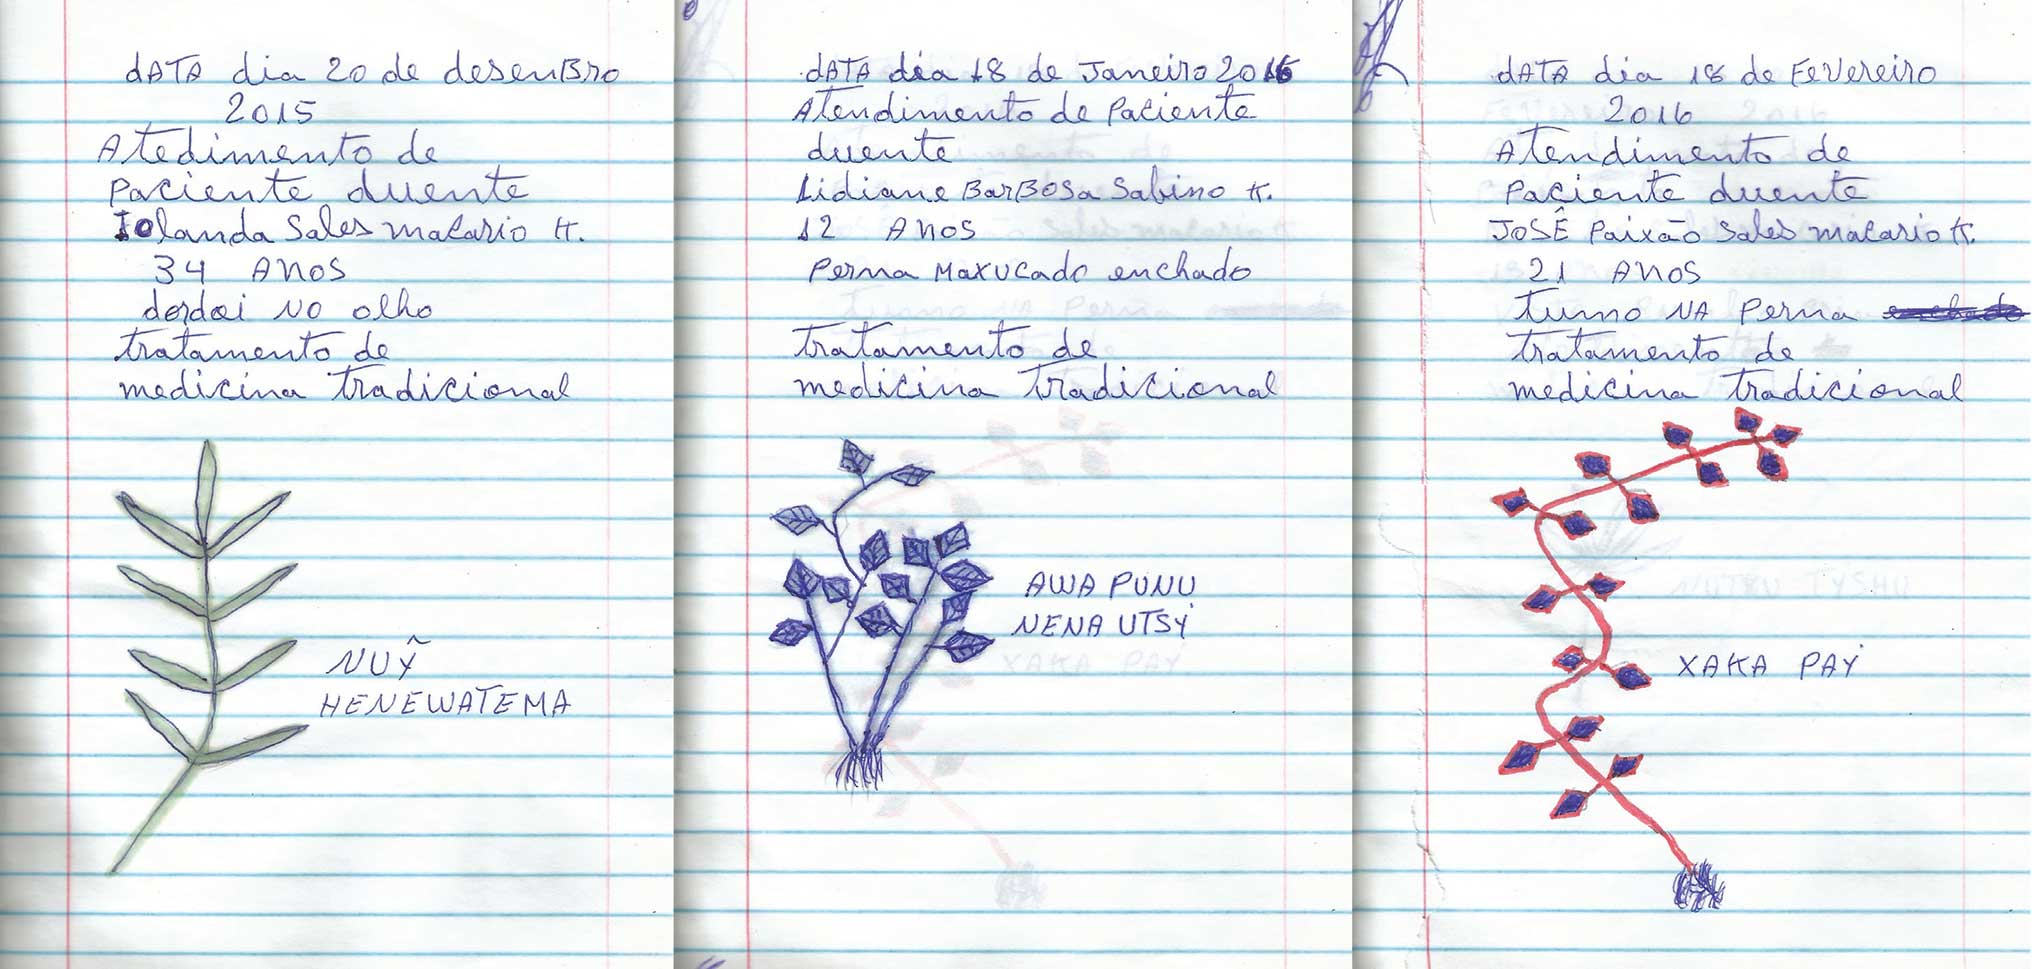 dATA dia 20 de desenBro
2015
Atedimento de
paciente duente
Iolanda Sales macario K.
34 ANOS
dordoi NO olho
tratamento de
medicina tradicional
NUỸ
HENEWATEMA
dATA dia 18 de Janeiro 2016
Atendimento de paciente
duente
Lidiane BarBosa Sabino K.
12 ANOS
perna maxucado enchado
tratamento de
medicina tradicional
AWA PUNU
NENA UTSY
dATA dia 18 de FeVereiro
2016
Atendimento de
paciente duente
JOSÊ Paixão Sales macario K.
21 ANOS
tumo NA perna enchado
tratamento de
medicina tradicional
XAKA PAY